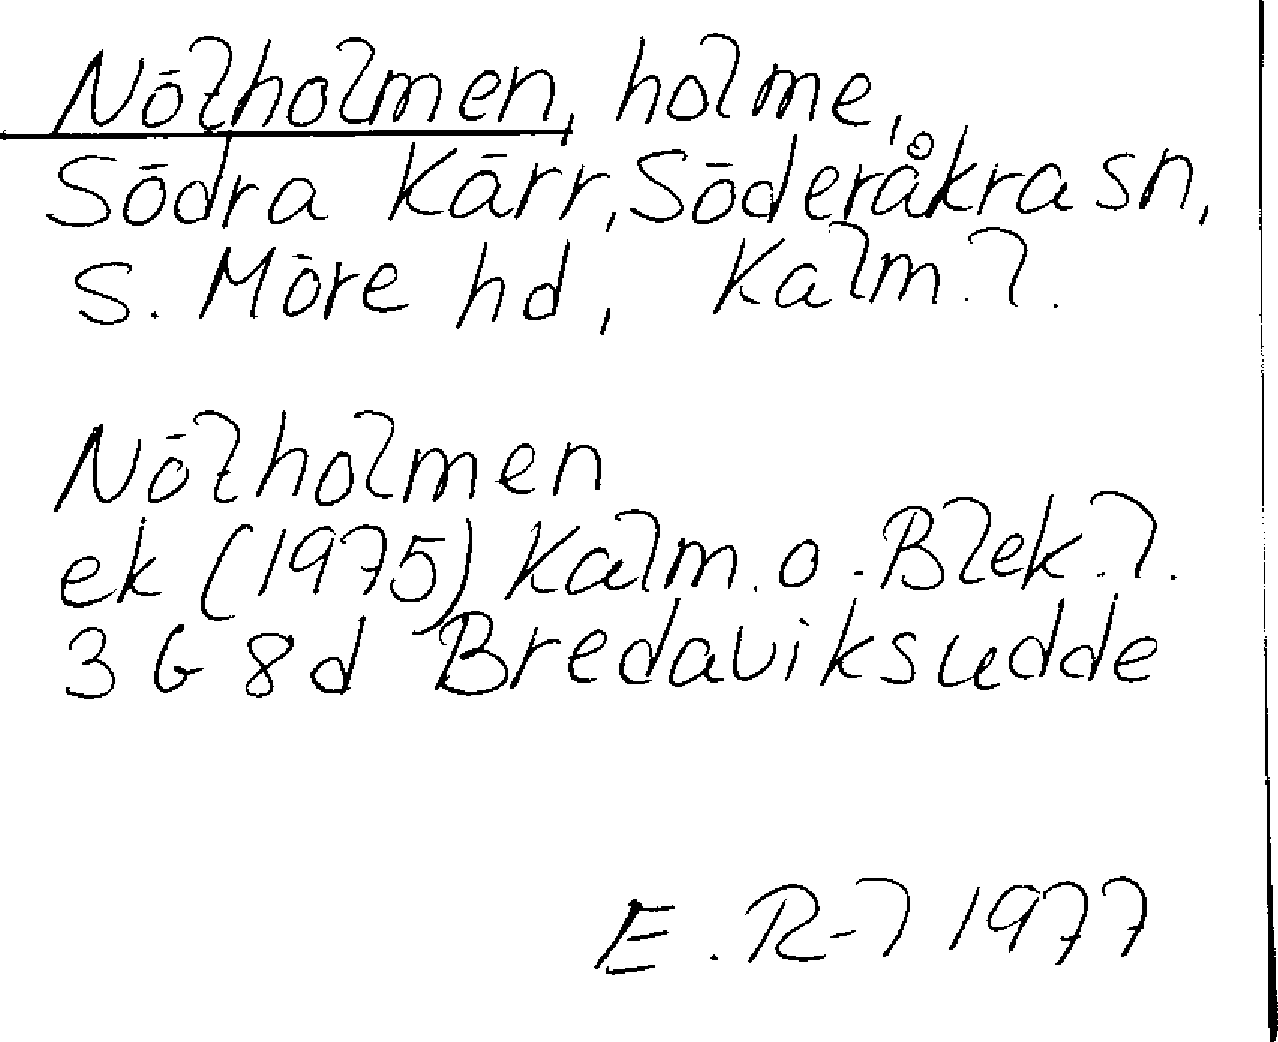 Nötholmen, holme,
Södra Kärr, Söderåkra sn,
S. Möre hd, Kalm. l.
Nötholmen
ek (1975) Kalm. o. Blek. l.
3 G 8d Bredaviksudde
E. R-l 1977